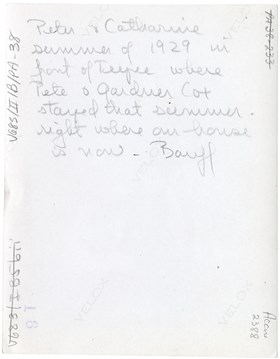 Peter & Catharine
summer of 1929 in
front of Teepee where
Pete & Gardner Cox
stayed that summer.
right where our house
is now - Banff
V685/II/B/PA-38
PA38-233
V683/I B5 b11
18
Accn
2388
VELOX
VELOX